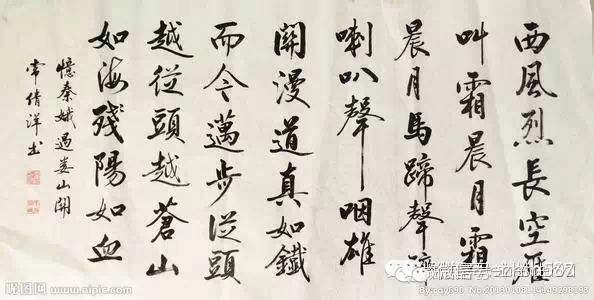 西風烈長空雁
叫霜晨月霜
晨月馬蹄聲碎
喇叭聲咽雄
關漫道真如鐵
而今邁步從頭
越從頭越蒼山
如海殘陽如血
憶秦娥過婁山關
常倩洋书
昵图网 www.nipic.com
微信号